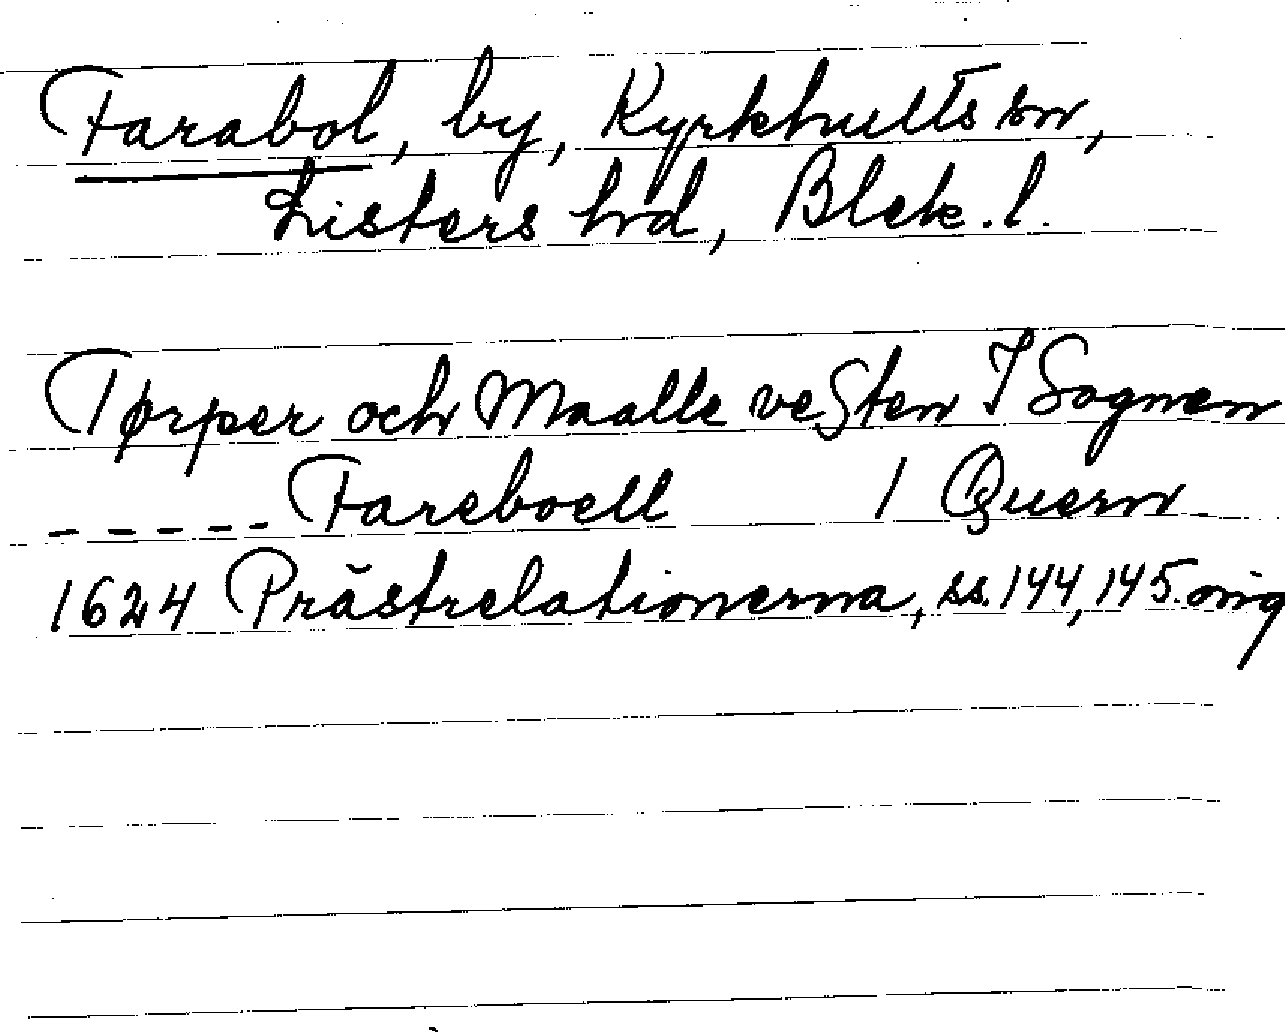 Farabol, by, Kyrkhults sn,
Listers hd, Blek. l.
Tørper och Maalle vesten I Sognen
- - - - - Fareboell 1 Quern
1624 Prästrelationerna, ss. 144, 145. orig